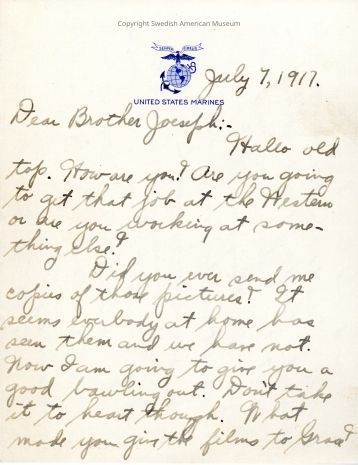 Copyright Swedish American Museum
SEMPER FIDELIS
UNITED STATES MARINES
July 7, 1917.
Dear Brother Joeseph:-
Hallo old
top. How are you? Are you going
to get that job at the Western
or are you working at some-
thing else?
Did you ever send me
copies of those pictures? It
seems everbody at home has
seen them and we have not.
Now I am going to give you a
good bawling out. Don't take
it to heart though. What
made you give the films to Grace?